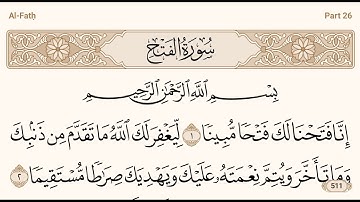 Al-Fatḥ Part 26
سُورَةُ الْفَتْحِ
بِسْمِ اللَّهِ الرَّحْمَٰنِ الرَّحِيمِ
إِنَّا فَتَحْنَا لَكَ فَتْحًا مُّبِينًا ١ لِّيَغْفِرَ لَكَ اللَّهُ مَا تَقَدَّمَ مِن ذَنۢبِكَ
وَمَا تَأَخَّرَ وَيُتِمَّ نِعْمَتَهُۥ عَلَيْكَ وَيَهْدِيَكَ صِرَٰطًا مُّسْتَقِيمًا ٢
511